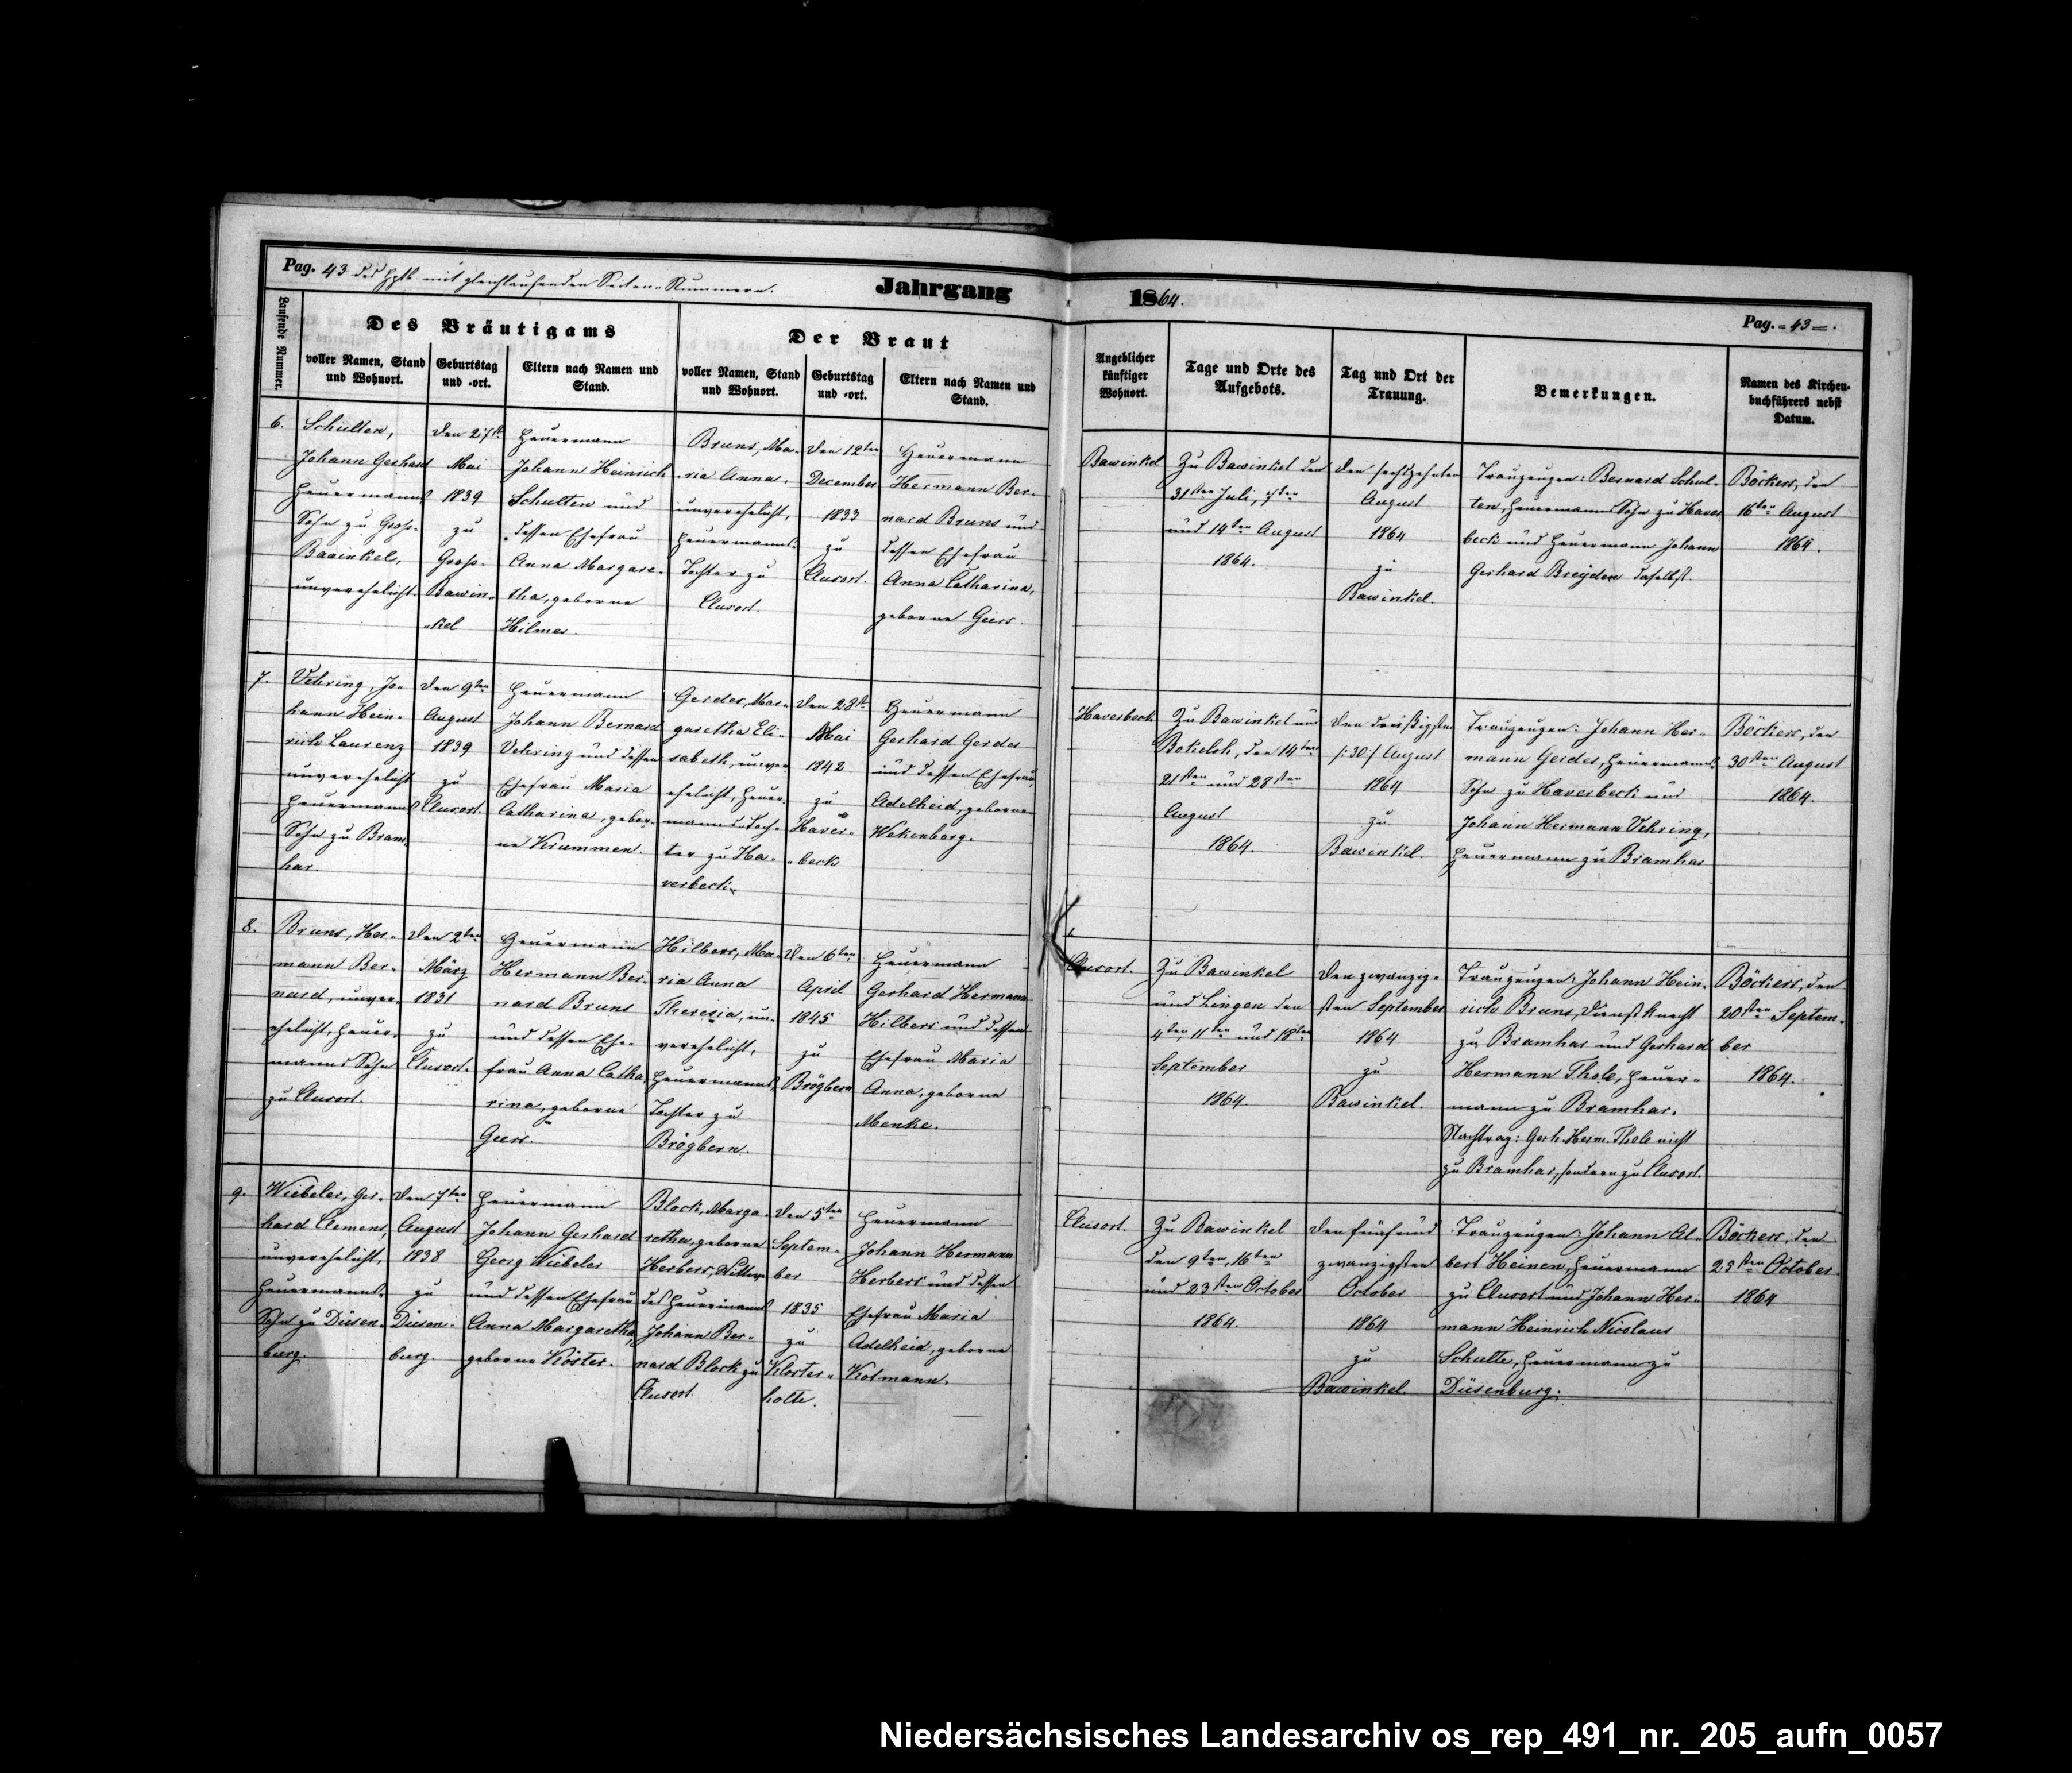 Pag. 43 des Hptb mit gleichlaufenden Seiten-Nummern.
Jahrgang 1864.
Pag. = 43 = .
Laufende Nummer.
Des Bräutigams
voller Namen, Stand
und Wohnort.
Geburtstag
und -ort.
Eltern nach Namen und
Stand.
Der Braut
voller Namen, Stand
und Wohnort.
Geburtstag
und -ort.
Eltern nach Namen und
Stand.
Angeblicher
künftiger
Wohnort.
Tage und Orte des
Aufgebots.
Tag und Ort der
Trauung.
Bemerkungen.
Namen des Kirchen-
buchführers nebst
Datum.
6.
Schulten,
Johann Gerhard
Heuermanns
Sohn zu Groß-
Bawinkel,
unverehelicht.
den 27st
Mai
1839
zu
Groß-
Bawin-
-kel
Heuermann
Johann Heinrich
Schulten und
dessen Ehefrau
Anna Margare-
tha, geborne
Hilmes.
Bruns, Ma-
-ria Anna,
unverehelicht,
Heuermanns-
Tochter zu
Clusort.
den 12ten
December
1833
zu
Clusort.
Heuermann
Hermann Ber-
nard Bruns und
dessen Ehefrau
Anna Catharina,
geborne Geers.
Bawinkel
Zu Bawinkel den
31sten Juli, 7ten
und 14ten August
1864.
den sechszehnten
August
1864
zu
Bawinkel.
Trauzeugen: Bernard Schul-
ten, Heuermanns Sohn zu Haver
beck und Heuermann Johann
Gerhard Breyden daselbst.
Böckers, den
16ten August
1864.
7.
Vehring, Jo-
hann Hein-
rich Laurenz
unverehelicht
Heuermanns
Sohn zu Bram
har.
den 9ten
August
1839
zu
Clusort.
Heuermann
Johann Bernard
Vehring und dessen
Ehefrau Maria
Catharina, gebor-
ne Krummen.
Gerdes, Mar-
garetha Eli-
sabeth, unver-
ehelicht, Heuer-
manns-Toch-
ter zu Ha-
verbeck.
den 28st
Mai
1842
zu
Haver-
-beck
Heuermann
Gerhard Gerdes
und dessen Ehefrau
Adelheid, geborne
Wekenborg.
Haverbeck
Zu Bawinkel und
Bokeloh, den 14ten
21sten und 28sten
August
1864.
den dreißigsten
/:30:/ August
1864
zu
Bawinkel.
Trauzeugen: Johann Her-
mann Gerdes, Heuermanns
Sohn zu Haverbeck und
Johann Hermann Vehring,
Heuermann zu Bramhar
Böckers, den
30sten August
1864.
8.
Bruns, Her-
mann Ber-
nard, unver-
ehelicht, Heuer-
manns Sohn
zu Clusort.
den 2ten
März
1831
zu
Clusort.
Heuermann
Hermann Ber-
nard Bruns
und dessen Ehe-
frau Anna Catha
rina, geborne
Geers.
Hilbers, Ma-
ria Anna
Theresia, un-
verehelicht,
Heuermanns
Tochter zu
Brögbern.
den 6ten
April
1845
zu
Brögbern
Heuermann
Gerhard Hermann
Hilbers und dessen
Ehefrau Maria
Anna, geborne
Menke.
Clusort.
Zu Bawinkel
und Lingen den
4ten, 11ten und 18ten
September
1864.
den zwanzig-
sten September
1864
zu
Bawinkel.
Trauzeugen: Johann Hein-
rich Bruns, Dienstknecht
zu Bramhar und Gerhard
Hermann Thole, Heuer-
mann zu Bramhar.
Nachtrag: Gerh. Herm. Thole nicht
zu Bramhar, sondern zu Clusort.
Böckers, den
20sten Septem-
ber
1864.
9.
Wiebeler, Ger-
hard Clemens,
unverehelicht,
Heuermanns-
Sohn zu Düsen-
burg.
den 7ten
August
1838
zu
Düsen-
burg.
Heuermann
Johann Gerhard
Georg Wiebeler
und dessen Ehefrau
Anna Margaretha,
geborne Köster.
Block, Marga-
retha, geborne
Herbers, Wittwe
des Heuermanns
Johann Ber-
nard Block zu
Clusort.
den 5ten
Septem-
ber
1835
zu
Kloster-
holte.
Heuermann
Johann Hermann
Herbers und dessen
Ehefrau Maria
Adelheid, geborne
Kotmann.
Clusort.
Zu Bawinkel
den 9ten, 16ten
und 23sten October
1864.
den fünf und
zwanzigsten
October
1864
zu
Bawinkel.
Trauzeugen: Johann Al-
bert Heinen, Heuermann
zu Clusort und Johann Her-
mann Heinrich Nicolaus
Schulte, Heuermann zu
Düsenburg.
Böckers, den
25sten October
1864
Niedersächsisches Landesarchiv os_rep_491_nr._205_aufn_0057